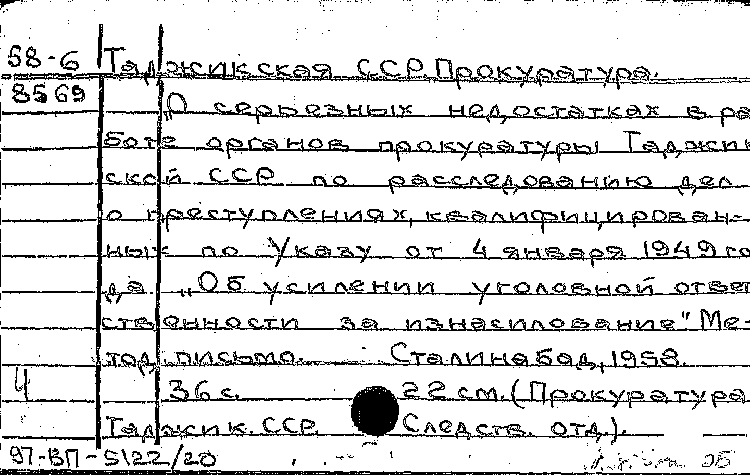 58-6 Таджикская ССР. Прокуратура.
8569
"О серьезных недостатках в ра
боте органов прокуратуры Таджик
ской ССР по расследованию дел
о преступлениях, квалифицирован-
ных по Указу от 4 января 1949 го
да "Об усилении уголовной ответ
ственности за изнасилование" Ме-
тод. письмо. Сталинабад, 1958.
4 36 с. 22 см. (Прокуратура
Таджик. ССР. Следств. отд.).
97-ВП-5122/20